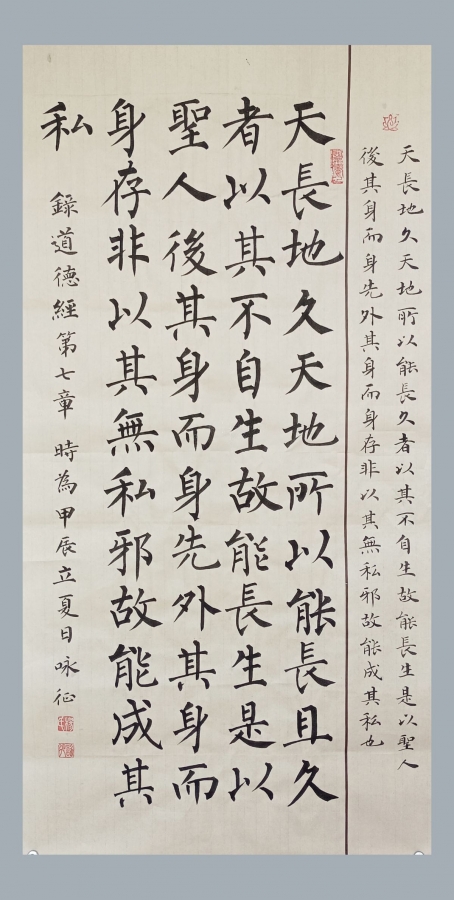 天長地久天地所以能長久者以其不自生故能長生是以聖人
後其身而身先外其身而身存非以其無私邪故能成其私也
天長地久天地所以能長且久
者以其不自生故能長生是以
聖人後其身而身先外其身而
身存非以其無私邪故能成其
私
錄道德經第七章 時為甲辰立夏日咏征